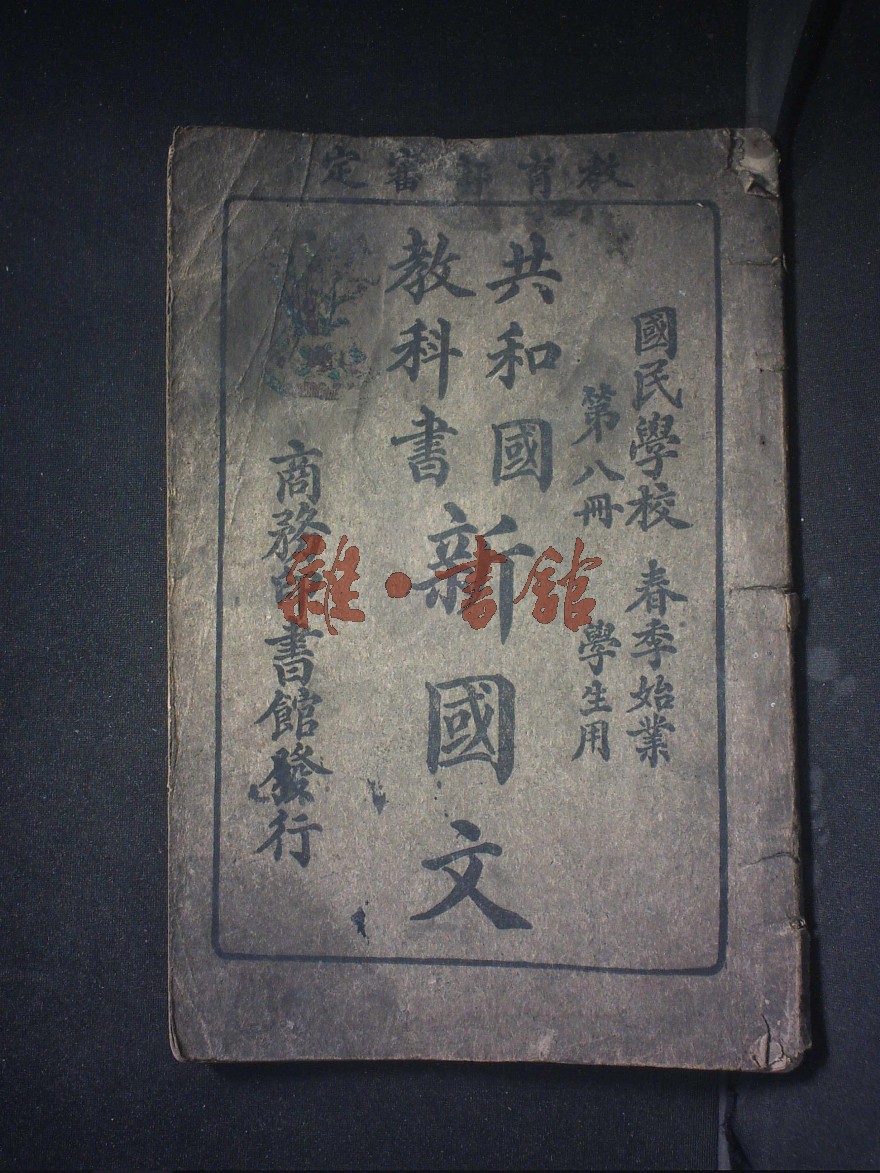 教育部審定
國民學校 春季始業
第八冊 學生用
共和國
教科書
新國文
商務印書館發行
雜·書館